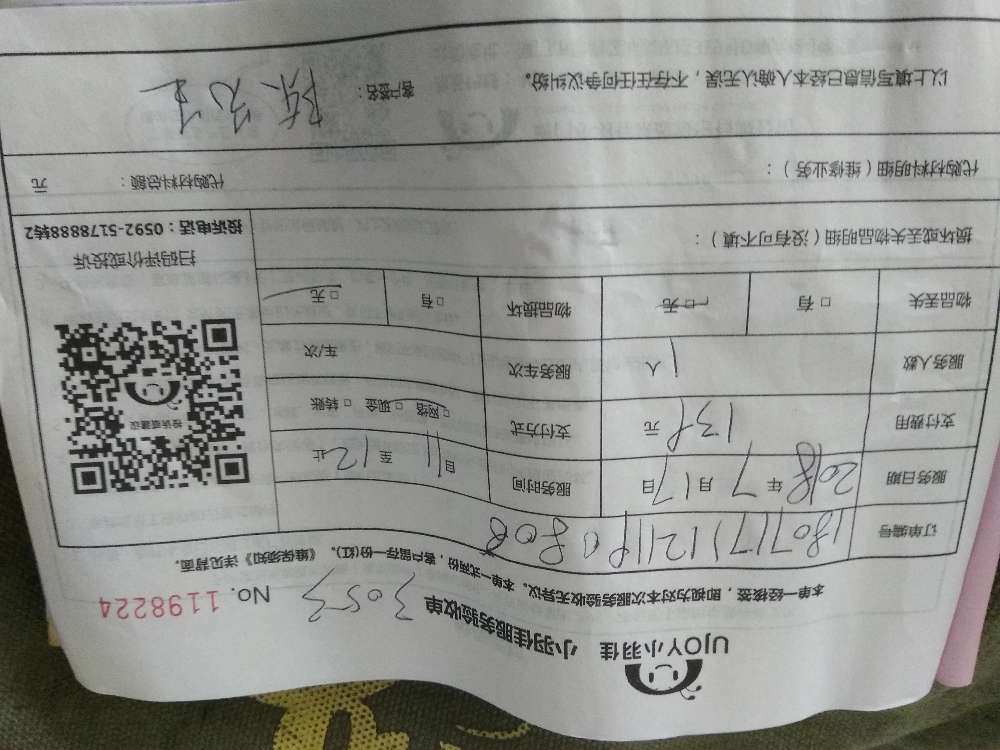 UJOY小羽佳
小羽佳服务验收单 3053 No. 1198224
本单一经核签，即视为对本次服务验收无异议。本单一式两份，客户留存一份(红)。《维保须知》详见背面。
订单编号
服务日期 2018 年 7 月 17 日 服务时间 自 11 至 12 止
支付费用 138 元 支付方式 □网络 □现金 □转账
服务人数 1 人 服务车次 车/次
物品丢失 □有 □无 物品损坏 □有 □无
损坏或丢失物品明细（没有可不填）：
投诉或建议
扫码评价或投诉
投诉电话：0592-5178888转2
代购材料明细（维修业务）： 代购材料总额： 元
以上填写信息已经本人确认无误，不存在任何争议纠纷。 客户签名： 陈先生